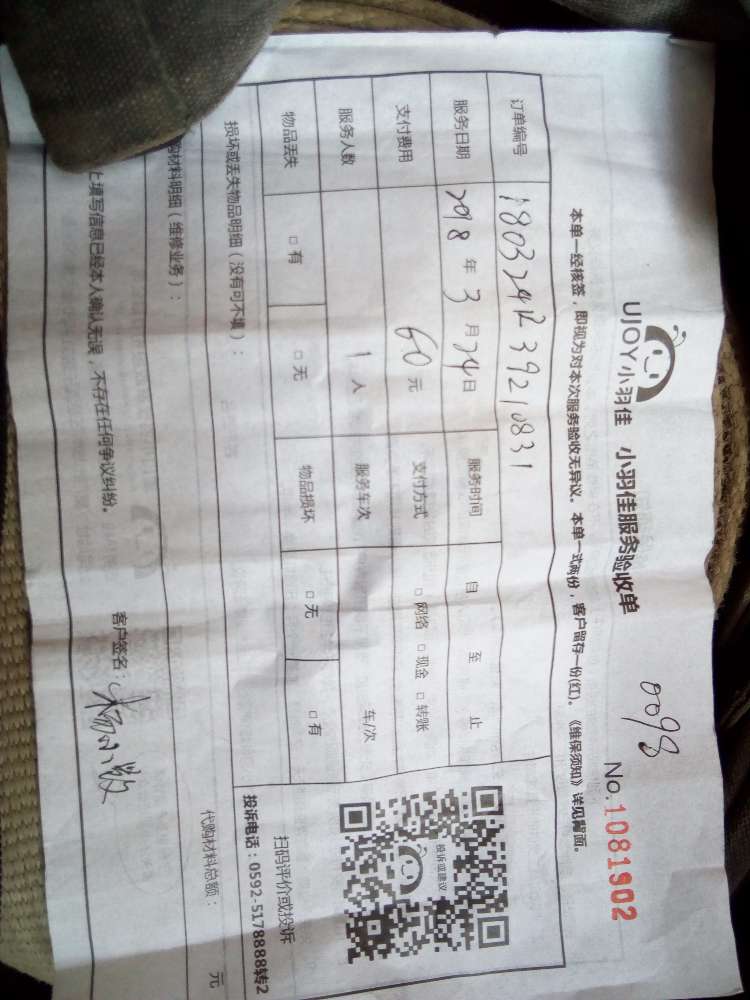 0098
UJOY小羽佳 小羽佳服务验收单 No.1081902
本单一经核签，即视为对本次服务验收无异议。本单一式两份，客户留存一份(红)。《维保须知》详见背面。
订单编号 1803241239210831
服务日期 2018年3月24日 服务时间 自 至 止
支付费用 60元 支付方式 □网络 □现金 □转账
服务人数 1人 服务车次 车/次
物品丢失 □有 □无 物品损坏 □无 □有
投诉或建议
扫码评价或投诉
投诉电话：0592-5178888转2
损坏或丢失物品明细（没有可不填）：
购材料明细（维修业务）： 代购材料总额： 元
上填写信息已经本人确认无误，不存在任何争议纠纷。 客户签名：